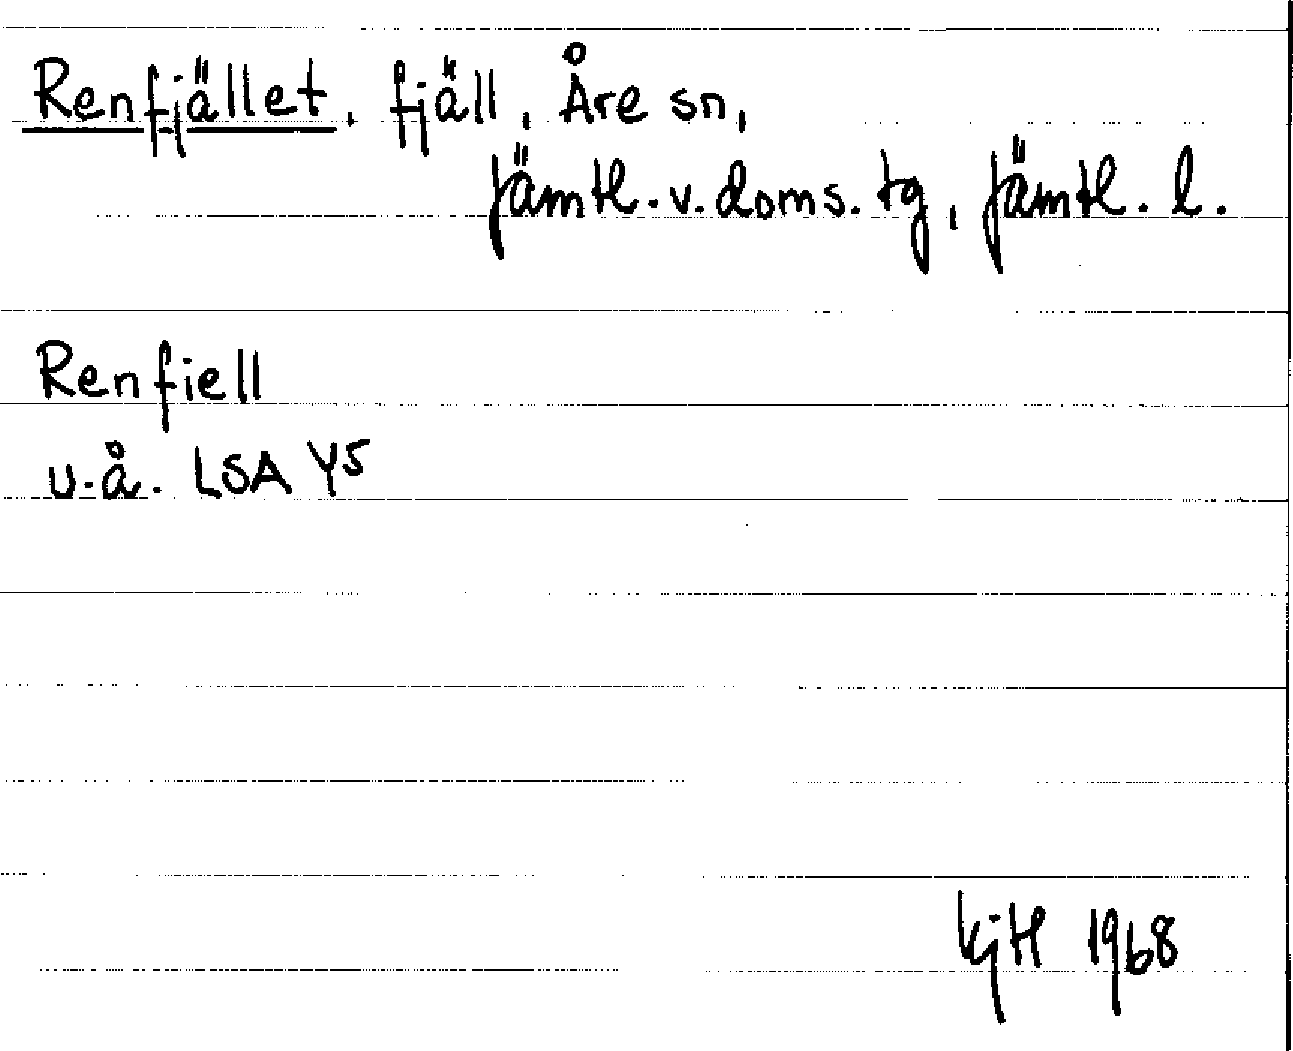 Renfjället, fjäll, Åre sn,
Jämtl. v. doms. tg, Jämtl. l.
Renfiell
u.å. LSA Y5
KjH 1968